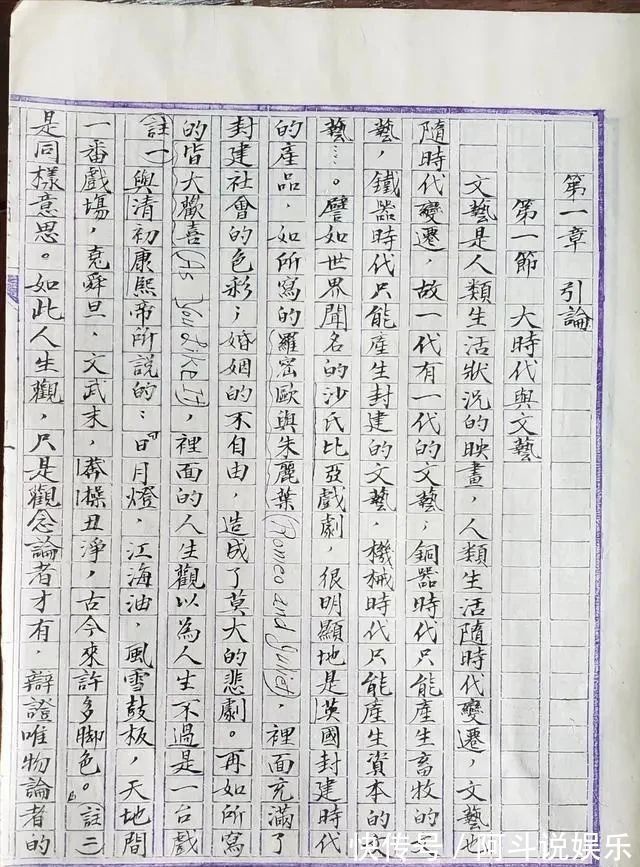 第一章 引論
第一節 大時代與文藝
文藝是人類生活狀況的映畫，人類生活隨時代變遷，文藝也
隨時代變遷，故一代有一代的文藝；銅器時代只能產生畜牧的文
藝，鐵器時代只能產生封建的文藝，機械時代只能產生資本的文
藝…。譬如世界聞名的沙氏比亞戲劇，很明顯地是英國封建時代
的產品，如所寫的羅密歐與朱麗葉(Romeo and Juliet)，裡面充滿了
封建社會的色彩；婚姻的不自由，造成了莫大的悲劇。再如所寫
的皆大歡喜(As You Like It)，裡面的人生觀以為人生不過是一台戲
註一與清初康熙帝所說的：「日月燈，江海油，風雪鼓板，天地間
一番戲場，堯舜旦，文武末，莽操丑淨，古今來許多脚色。」註二
是同樣意思。如此人生觀，只是觀念論者才有，辯證唯物論者的
快传号/阿斗说娱乐